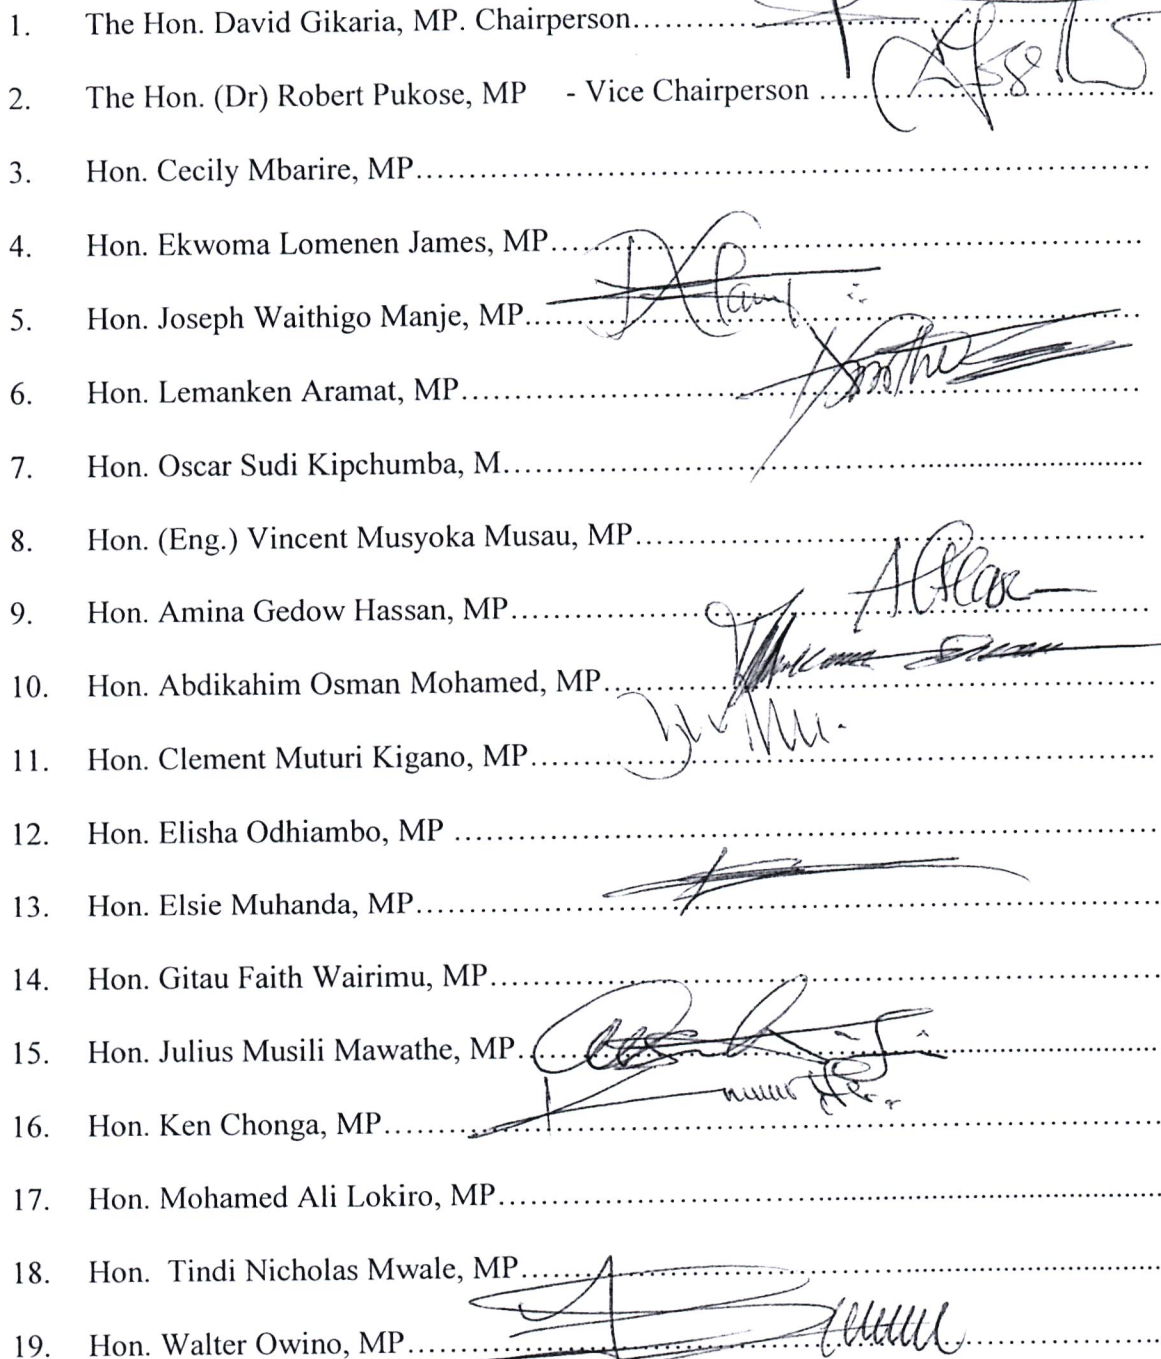 1. The Hon. David Gikaria, MP. Chairperson
2. The Hon. (Dr) Robert Pukose, MP - Vice Chairperson
3. Hon. Cecily Mbarire, MP
4. Hon. Ekwoma Lomenen James, MP
5. Hon. Joseph Waithigo Manje, MP
6. Hon. Lemanken Aramat, MP
7. Hon. Oscar Sudi Kipchumba, M
8. Hon. (Eng.) Vincent Musyoka Musau, MP
9. Hon. Amina Gedow Hassan, MP
10. Hon. Abdikahim Osman Mohamed, MP
11. Hon. Clement Muturi Kigano, MP
12. Hon. Elisha Odhiambo, MP
13. Hon. Elsie Muhanda, MP
14. Hon. Gitau Faith Wairimu, MP
15. Hon. Julius Musili Mawathe, MP
16. Hon. Ken Chonga, MP
17. Hon. Mohamed Ali Lokiro, MP
18. Hon. Tindi Nicholas Mwale, MP
19. Hon. Walter Owino, MP